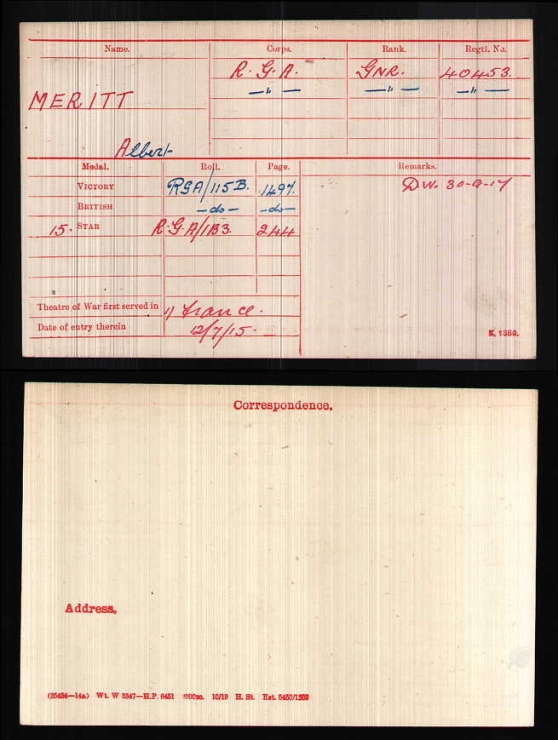 Name. Corps. Rank. Regtl. No.
MERITT R.G.A. GNR. 40453.
—"— —"— —"—
Albert
Medal. Roll. Page. Remarks.
VICTORY RGA/115B. 1497. D.W. 30-9-17
BRITISH —do— —do—
15. STAR R.G.A/1B3. 244
Theatre of War first served in 1) France.
Date of entry therein 2/7/15.
K. 1380.
Correspondence.
Address,
Wt. W 3347—H.P. 6451 10/19 H. St.